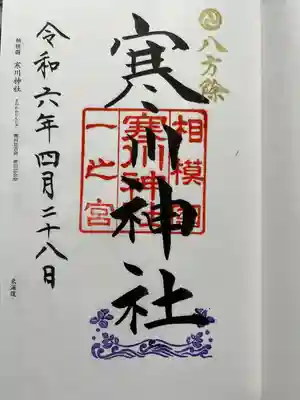 八方除
寒川神社
相模國
寒川神社
一之宮
令和六年四月二十八日
相模國 寒川神社